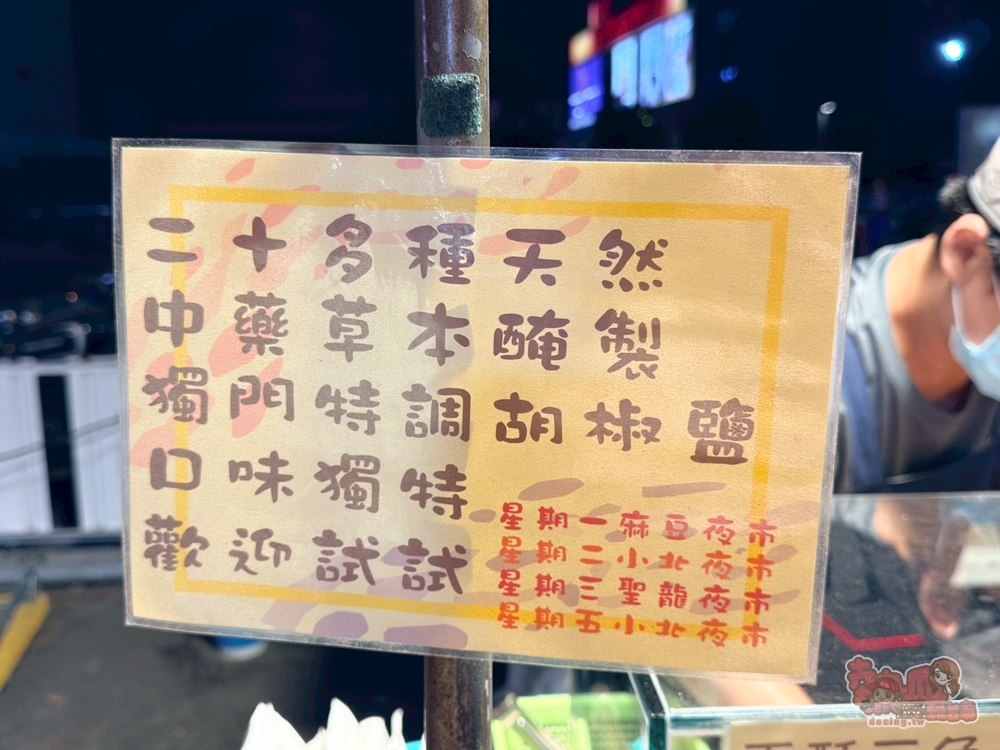 二十多種天然
中藥草本醃製
獨門特調胡椒鹽
口味獨特
歡迎試試
星期一麻豆夜市
星期二小北夜市
星期三聖龍夜市
星期五小北夜市
deeing.tw